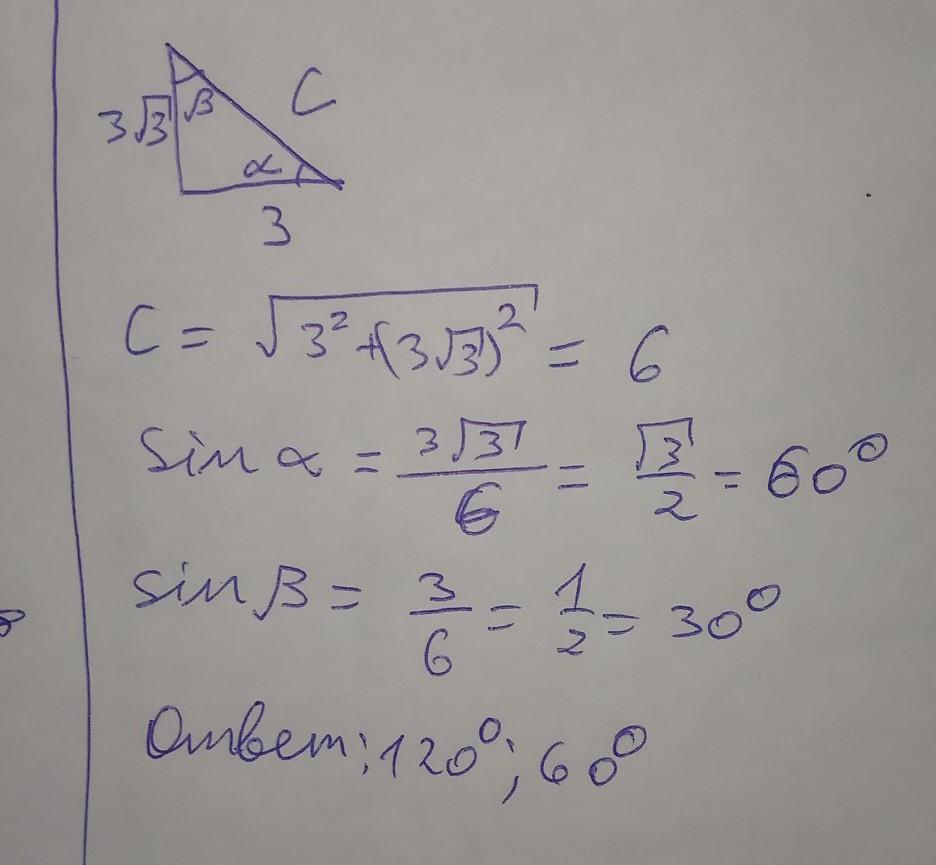 3√3 β C
α
3
C = √(3² + (3√3)²) = 6
Sin α = 3√3/6 = √3/2 = 60°
sin β = 3/6 = 1/2 = 30°
Ответ: 120°; 60°